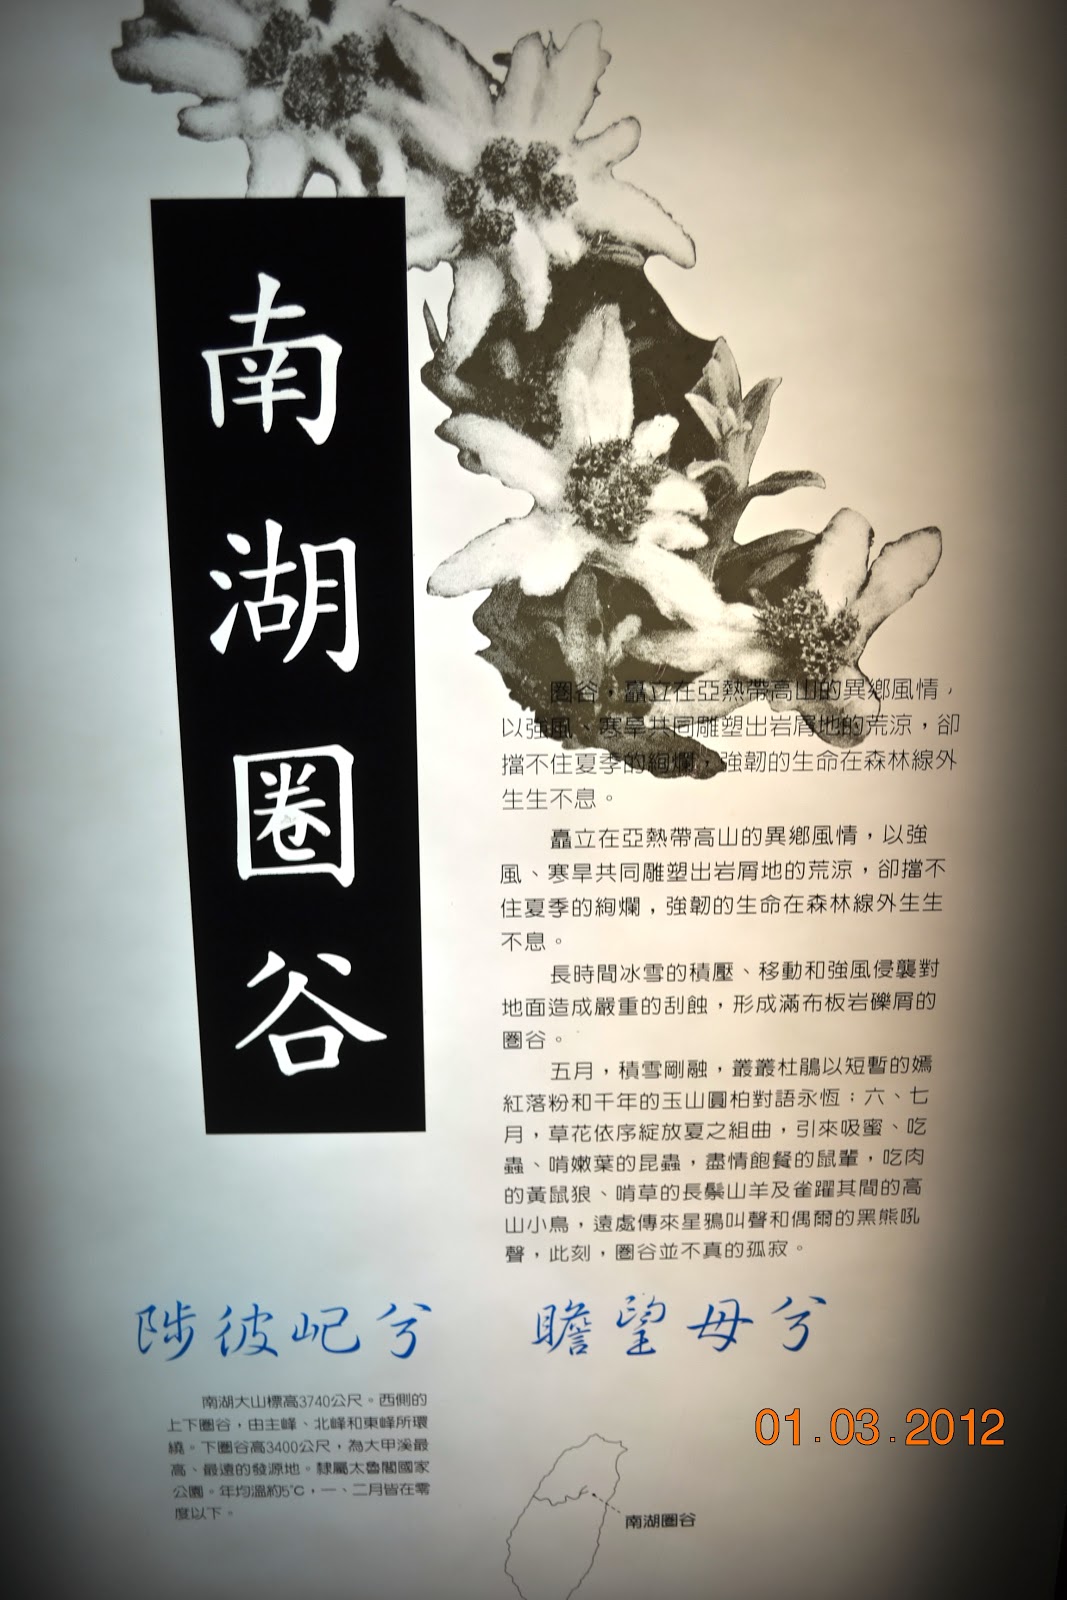 南湖圈谷
圈谷，矗立在亞熱帶高山的異鄉風情，
以強風、寒旱共同雕塑出岩屑地的荒涼，卻
擋不住夏季的絢爛，強韌的生命在森林線外
生生不息。
矗立在亞熱帶高山的異鄉風情，以強
風、寒旱共同雕塑出岩屑地的荒涼，卻擋不
住夏季的絢爛，強韌的生命在森林線外生生
不息。
長時間冰雪的積壓、移動和強風侵襲對
地面造成嚴重的刮蝕，形成滿布板岩礫屑的
圈谷。
五月，積雪剛融，叢叢杜鵑以短暫的嫣
紅落粉和千年的玉山圓柏對語永恆；六、七
月，草花依序綻放夏之組曲，引來吸蜜、吃
蟲、啃嫩葉的昆蟲，盡情飽餐的鼠輩，吃肉
的黃鼠狼、啃草的長鬃山羊及雀躍其間的高
山小鳥，遠處傳來星鴉叫聲和偶爾的黑熊吼
聲，此刻，圈谷並不真的孤寂。
陟彼屺兮 瞻望母兮
南湖大山標高3740公尺。西側的
上下圈谷，由主峰、北峰和東峰所環
繞。下圈谷高3400公尺，為大甲溪最
高、最遠的發源地。隸屬太魯閣國家
公園。年均溫約5℃，一、二月皆在零
度以下。
南湖圈谷
01.03.2012